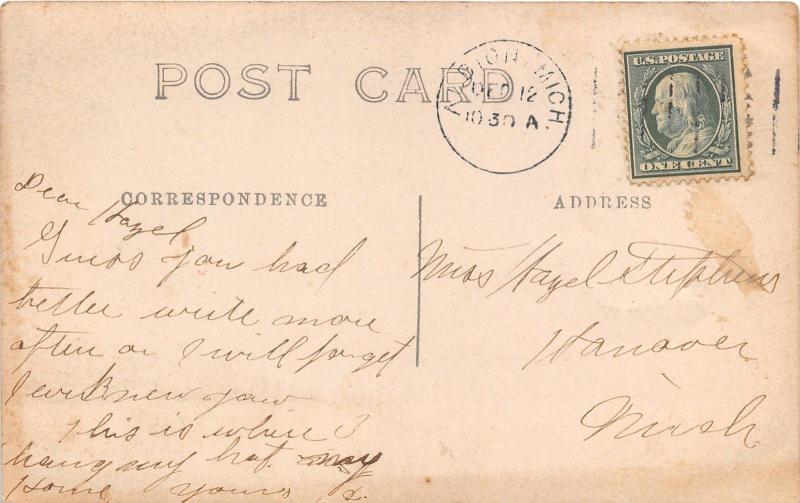 POST CARD
ALBION, MICH.
DEC 12
10 30 A.
U.S. POSTAGE
ONE CENT
CORRESPONDENCE
ADDRESS
Dear Hazel
Guess you had
better write more
often or I will forget
I ever knew you
This is where I
hang my hat. my
Home yours
Miss Hazel Stephens
Hanover
Mich